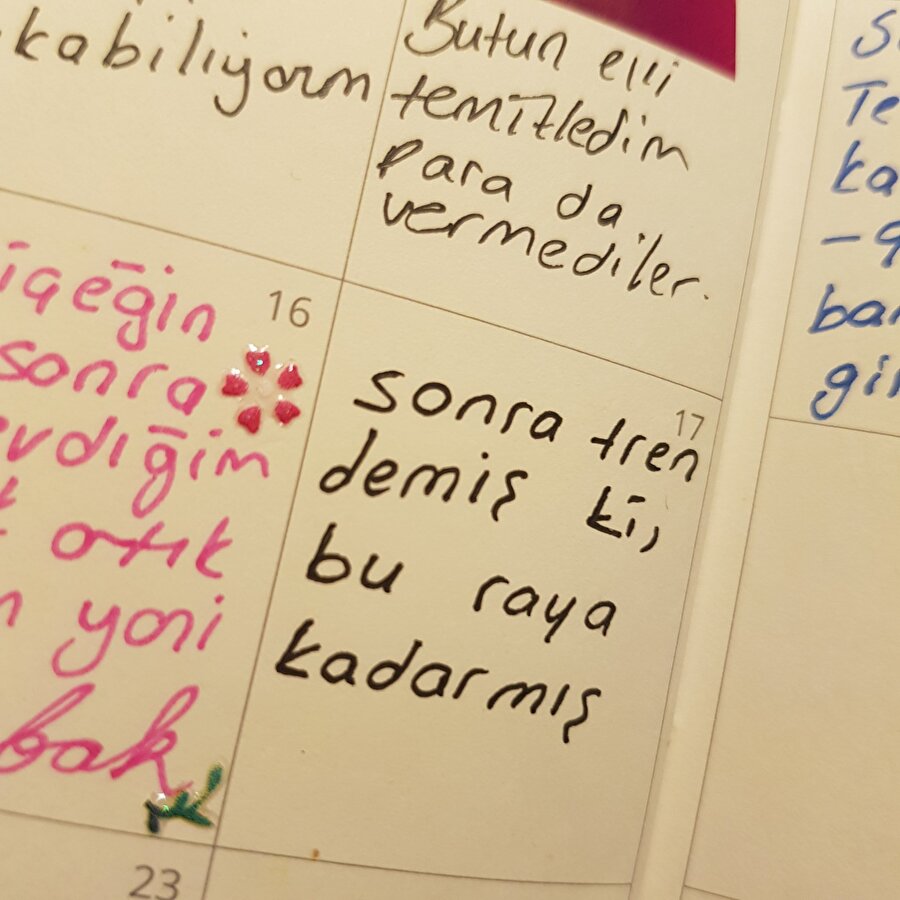 kabiliyorm
Bütün evi
temizledim
para da
vermediler.
içeğin
16
sonra
vdiğim
artık
yani
bak
17
sonra tren
demiş ki,
bu raya
kadarmış
23
Te
ka
bar
gir